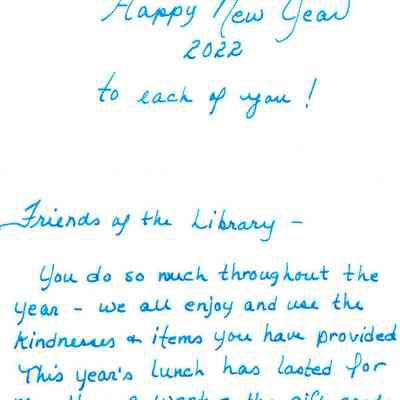 Happy New Year
2022
to each of you!
Friends of the Library -
You do so much throughout the
year - we all enjoy and use the
kindnesses & items you have provided
This year's lunch has lasted for
the gift